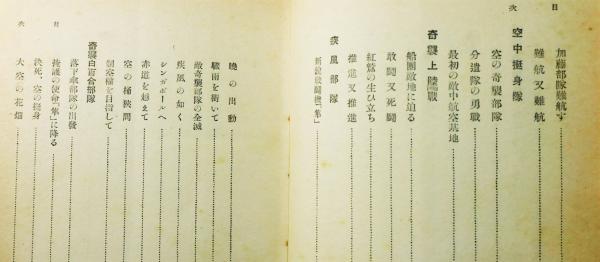 目次
加藤部隊難航す
難航又難航
空中挺身隊
空の奇襲部隊
分遣隊の勇戰
最初の敵中航空基地
奇襲上陸戰
船團敵地に迫る
敢鬪又死鬪
紅鷲の生ひ立ち
推進又推進
疾風部隊
新銳戰鬪機「隼」
曉の出動
驟雨を衝いて
敵奇襲部隊の全滅
疾風の如く
シンガポールへ
赤道を越えて
空の桶狹間
製油
奇襲白百合部隊
落下傘部隊の出發
掩護の使命「隼」に降る
決死、空の挺身
大空の花畑
目次